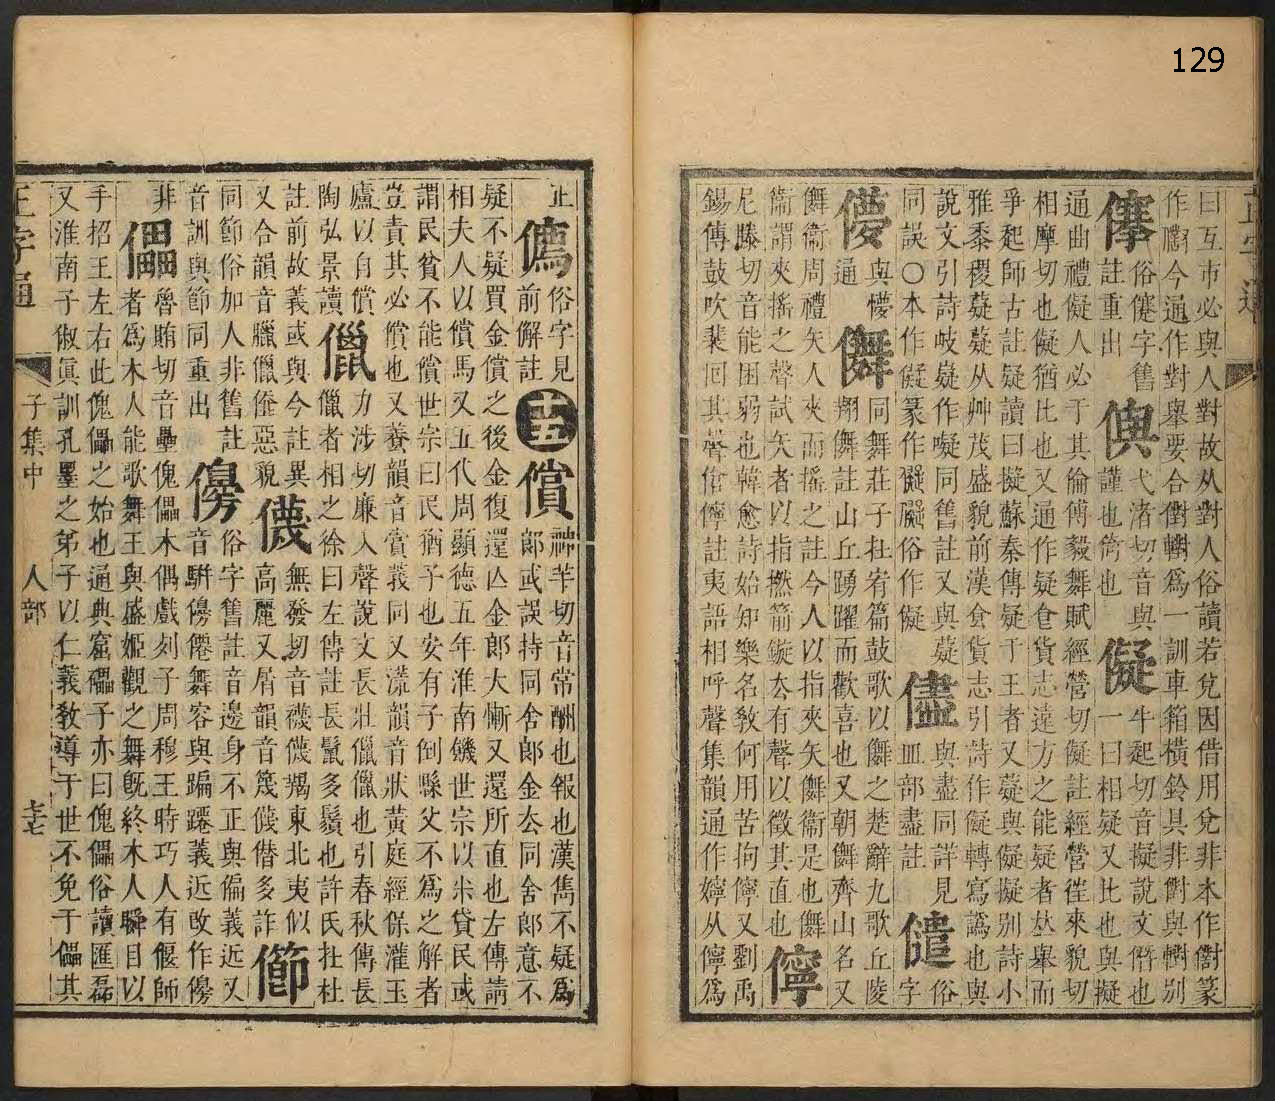 129
曰互市必與人對故从對人俗讀若兌因借用兌非本作儎篆
作㒛今通作對舉要合儎轛爲一訓車箱橫鈴具非儎與轛別
儓俗僿字舊註重出
傿弋渚切音與謹也
儗牛起切音擬說文僭也一曰相疑又比也與擬
通曲禮儗人必于其倫傅毅舞賦經營切儗註經營往來貌切
相摩切也儗猶比也又通作疑食貨志遠方之能疑者𠀤舉而
爭起師古註疑讀曰擬蘇秦傳疑于王者又薿與儗擬別詩小
雅黍稷薿薿从艸茂盛貌前漢食貨志引詩作儗轉寫譌也與
說文引詩岐嶷作㘈同舊註又與薿
同誤○本作儗篆作儗礙俗作儗
儘與盡同詳見皿部盡註
儙俗字
儚與懜通
儛同舞莊子在宥篇鼓歌以儛之楚辭九歌丘陵
翔儛註山丘踴躍而歡喜也又朝儛齊山名又
儛衛周禮矢人夾而搖之註今人以指夾矢儛衛是也儛
衞謂夾搖之聲試矢者以指撚箭鏇去有聲以徵其直也
儜
尼縢切音能困弱也韓愈詩始知樂名敎何用苦拘儜又劉禹
錫傳鼓吹裴回其聲傖儜註夷語相呼聲集韻通作嬣从儜爲
正
僞俗字見前解註
十五
償神羊切音常酬也報也漢雋不疑爲
郎或誤持同舍郎金去同舍郎意不
疑不疑買金償之後金復還亾金郎大慚又還所直也左傳請
相夫人以償馬又五代周顯德五年淮南饑世宗以米貸民或
謂民貧不能償世宗曰民猶子也安有子倒縣父不爲之解者
豈責其必償也又養韻音賞義同又漾韻音狀黃庭經保灌玉
廬以自償
儠力涉切廉入聲說文長壯儠儠也引春秋傳長
儠者相之徐曰左傳註長鬣多鬚也許氏杜杜
陶弘景讀註前故義或與今註異
儯無發切音襪儯羯東北夷似
高麗又屑韻音篾儯僣多詐
又合韻音臘儠㒎惡貌
節同節俗加人非舊註音訓與節同重出
㒙俗字舊註音邊身不正與偏義近又
音騈㒙僊舞容與蹁躚義近改作㒙
非
儡魯賄切音壘傀儡木偶戲列子周穆王時巧人有偃師
者爲木人能歌舞王與盛姬觀之舞旣終木人瞬目以
手招王左右此傀儡之始也通典窟礧子亦曰傀儡俗讀匯磊
又淮南子俶眞訓孔墨之弟子以仁義敎導于世不免于儡其
正字通
子集中
人部
七十七